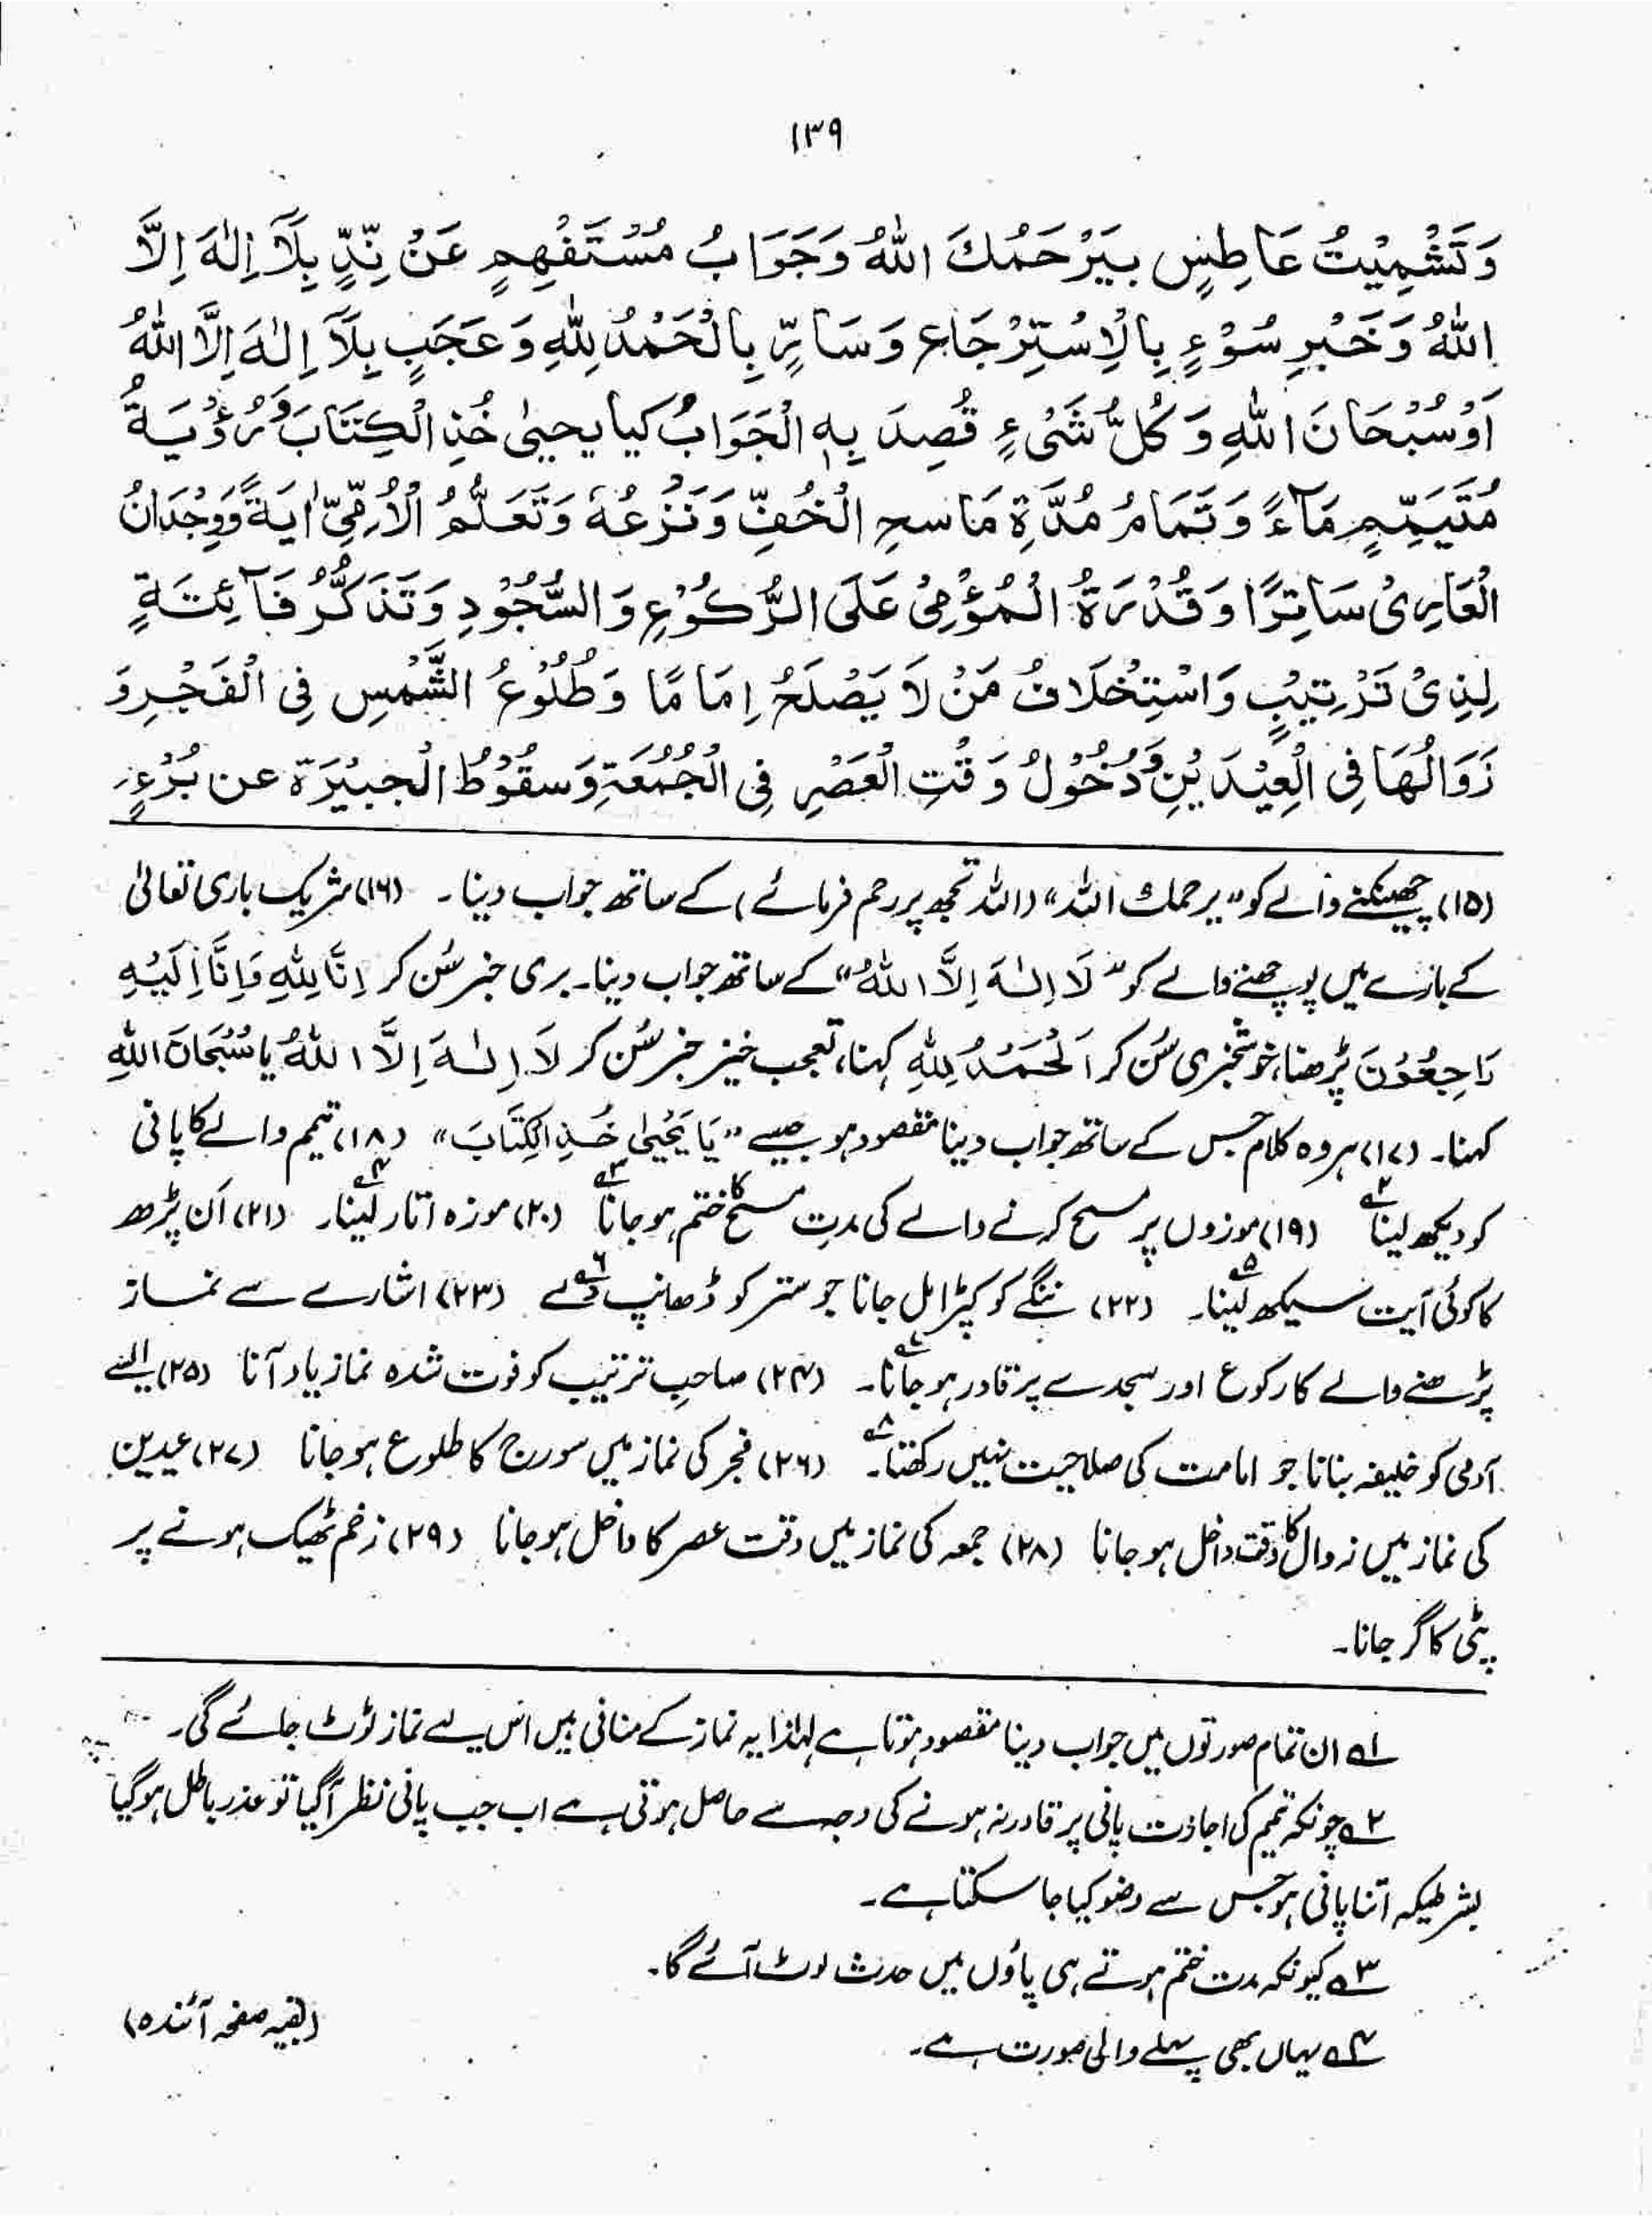 ۱۳۹
وَتَشْمِيْتُ عَاطِسٍ بِيَرْحَمُكَ اللّٰهُ وَجَوَابُ مُسْتَفْهِمٍ عَنْ نِّدٍّ بِلَآ اِلٰهَ اِلَّا
اللّٰهُ وَخَبْرِ سُوْءٍ بِالْاِسْتِرْجَاعِ وَسَارٍّ بِالْحَمْدُ لِلّٰهِ وَعَجَبٍ بِلَآ اِلٰهَ اِلَّا اللّٰهُ
اَوْ سُبْحَانَ اللّٰهِ وَكُلُّ شَيْءٍ قُصِدَ بِهِ الْجَوَابُ كيا يحيىٰ خُذِ الْكِتَابَ وَرُؤْيَةُ
مُتَيَمِّمٍ مَآءً وَتَمَامُ مُدَّةِ مَاسحِ الْخُفِّ وَنَزْعُهٗ وَتَعَلُّمُ الْاُمِّيِّ اٰيَةً وَّوِجْدَانُ
الْعَارِيْ سَاتِرًا وَقُدْرَةُ الْمُؤْمِيْ عَلَى الرُّكُوْعِ وَالسُّجُوْدِ وَتَذَكُّرُ فَآئِتَةٍ
لِذِيْ تَرْتِيْبٍ وَاسْتِخْلَافُ مَنْ لَا يَصْلَحُ اِمَامًا وَطُلُوْعُ الشَّمْسِ فِى الْفَجْرِ وَ
زَوَالُهَا فِى الْعِيْدَيْنِ وَدُخُوْلُ وَقْتِ الْعَصْرِ فِى الْجُمُعَةِ وَسقُوْطُ الْجبِيْرَة عن بُرْءٍ
(۱۵) چھینکنے والے کو ”یرحمك اللہ“ (اللہ تجھ پر رحم فرمائے) کے ساتھ جواب دینا۔ (۱۶) شریک باری تعالیٰ
کے بارے میں پوچھنے والے کو ”لَا اِلٰہَ اِلَّا اللہُ“ کے ساتھ جواب دینا۔ بری خبر سُن کر اِنَّا لِلّٰہِ وَاِنَّا اِلَیْہِ
رَاجِعُوْنَ پڑھنا، خوشخبری سُن کر اَلْحَمْدُ لِلّٰہِ کہنا، تعجب خیز خبر سُن کر لَا اِلٰہَ اِلَّا اللہُ یا سُبْحَانَ اللہِ
کہنا۔ (۱۷) ہر وہ کلام جس کے ساتھ جواب دینا مقصود ہو جیسے ”یَا یَحْییٰ خُذِ الْکِتَابَ“ (۱۸) تیمم والے کا پانی
کو دیکھ لینا۲ (۱۹) موزوں پر مسح کرنے والے کی مدتِ مسح کا ختم ہو جانا۳ (۲۰) موزہ اتار لینا۴۔ (۲۱) اَن پڑھ
کا کوئی آیت سیکھ لینا۵۔ (۲۲) ننگے کو کپڑا مل جانا جو ستر کو ڈھانپ دے۶ (۲۳) اشارے سے نماز
پڑھنے والے کا رکوع اور سجدے پر قادر ہو جانا۷۔ (۲۴) صاحبِ ترتیب کو فوت شدہ نماز یاد آنا (۲۵) ایسے
آدمی کو خلیفہ بنانا جو امامت کی صلاحیت نہیں رکھتا۸۔ (۲۶) فجر کی نماز میں سورج کا طلوع ہو جانا (۲۷) عیدین
کی نماز میں زوال کا وقت داخل ہو جانا (۲۸) جمعہ کی نماز میں وقت عصر کا داخل ہو جانا (۲۹) زخم ٹھیک ہونے پر
پٹی کا گر جانا۔
۱؎ ان تمام صورتوں میں جواب دینا مقصود ہوتا ہے لہٰذا یہ نماز کے منافی ہیں اس لیے نماز ٹوٹ جائے گی۔
۲؎ چونکہ تیمم کی اجازت پانی پر قادر نہ ہونے کی وجہ سے حاصل ہوتی ہے اب جب پانی نظر آگیا تو عذر باطل ہو گیا
بشرطیکہ اتنا پانی ہو جس سے وضو کیا جا سکتا ہے۔
۳؎ کیونکہ مدت ختم ہوتے ہی پاؤں میں حدث لوٹ آئے گا۔
۴؎ یہاں بھی پہلے والی صورت ہے۔
(بقیہ صفحہ آئندہ)